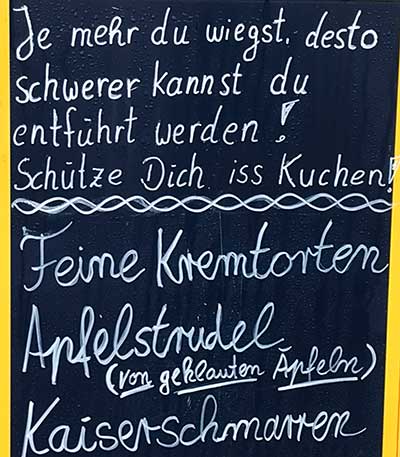 Je mehr du wiegst, desto
schwerer kannst du
entführt werden!
Schütze Dich iss Kuchen!
Feine Kremtorten
Apfelstrudel
(von geklauten Äpfeln)
Kaiserschmarren